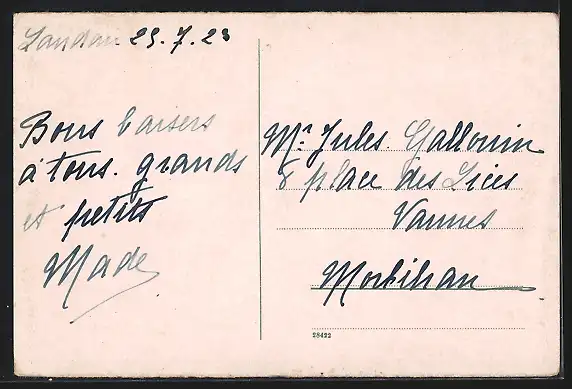 Landau 25.7.23
Bons baisers
à tous. grands
et petits
Made
Mr. Jules Gallouin
8 place des Lices
Vannes
Morbihan
28422